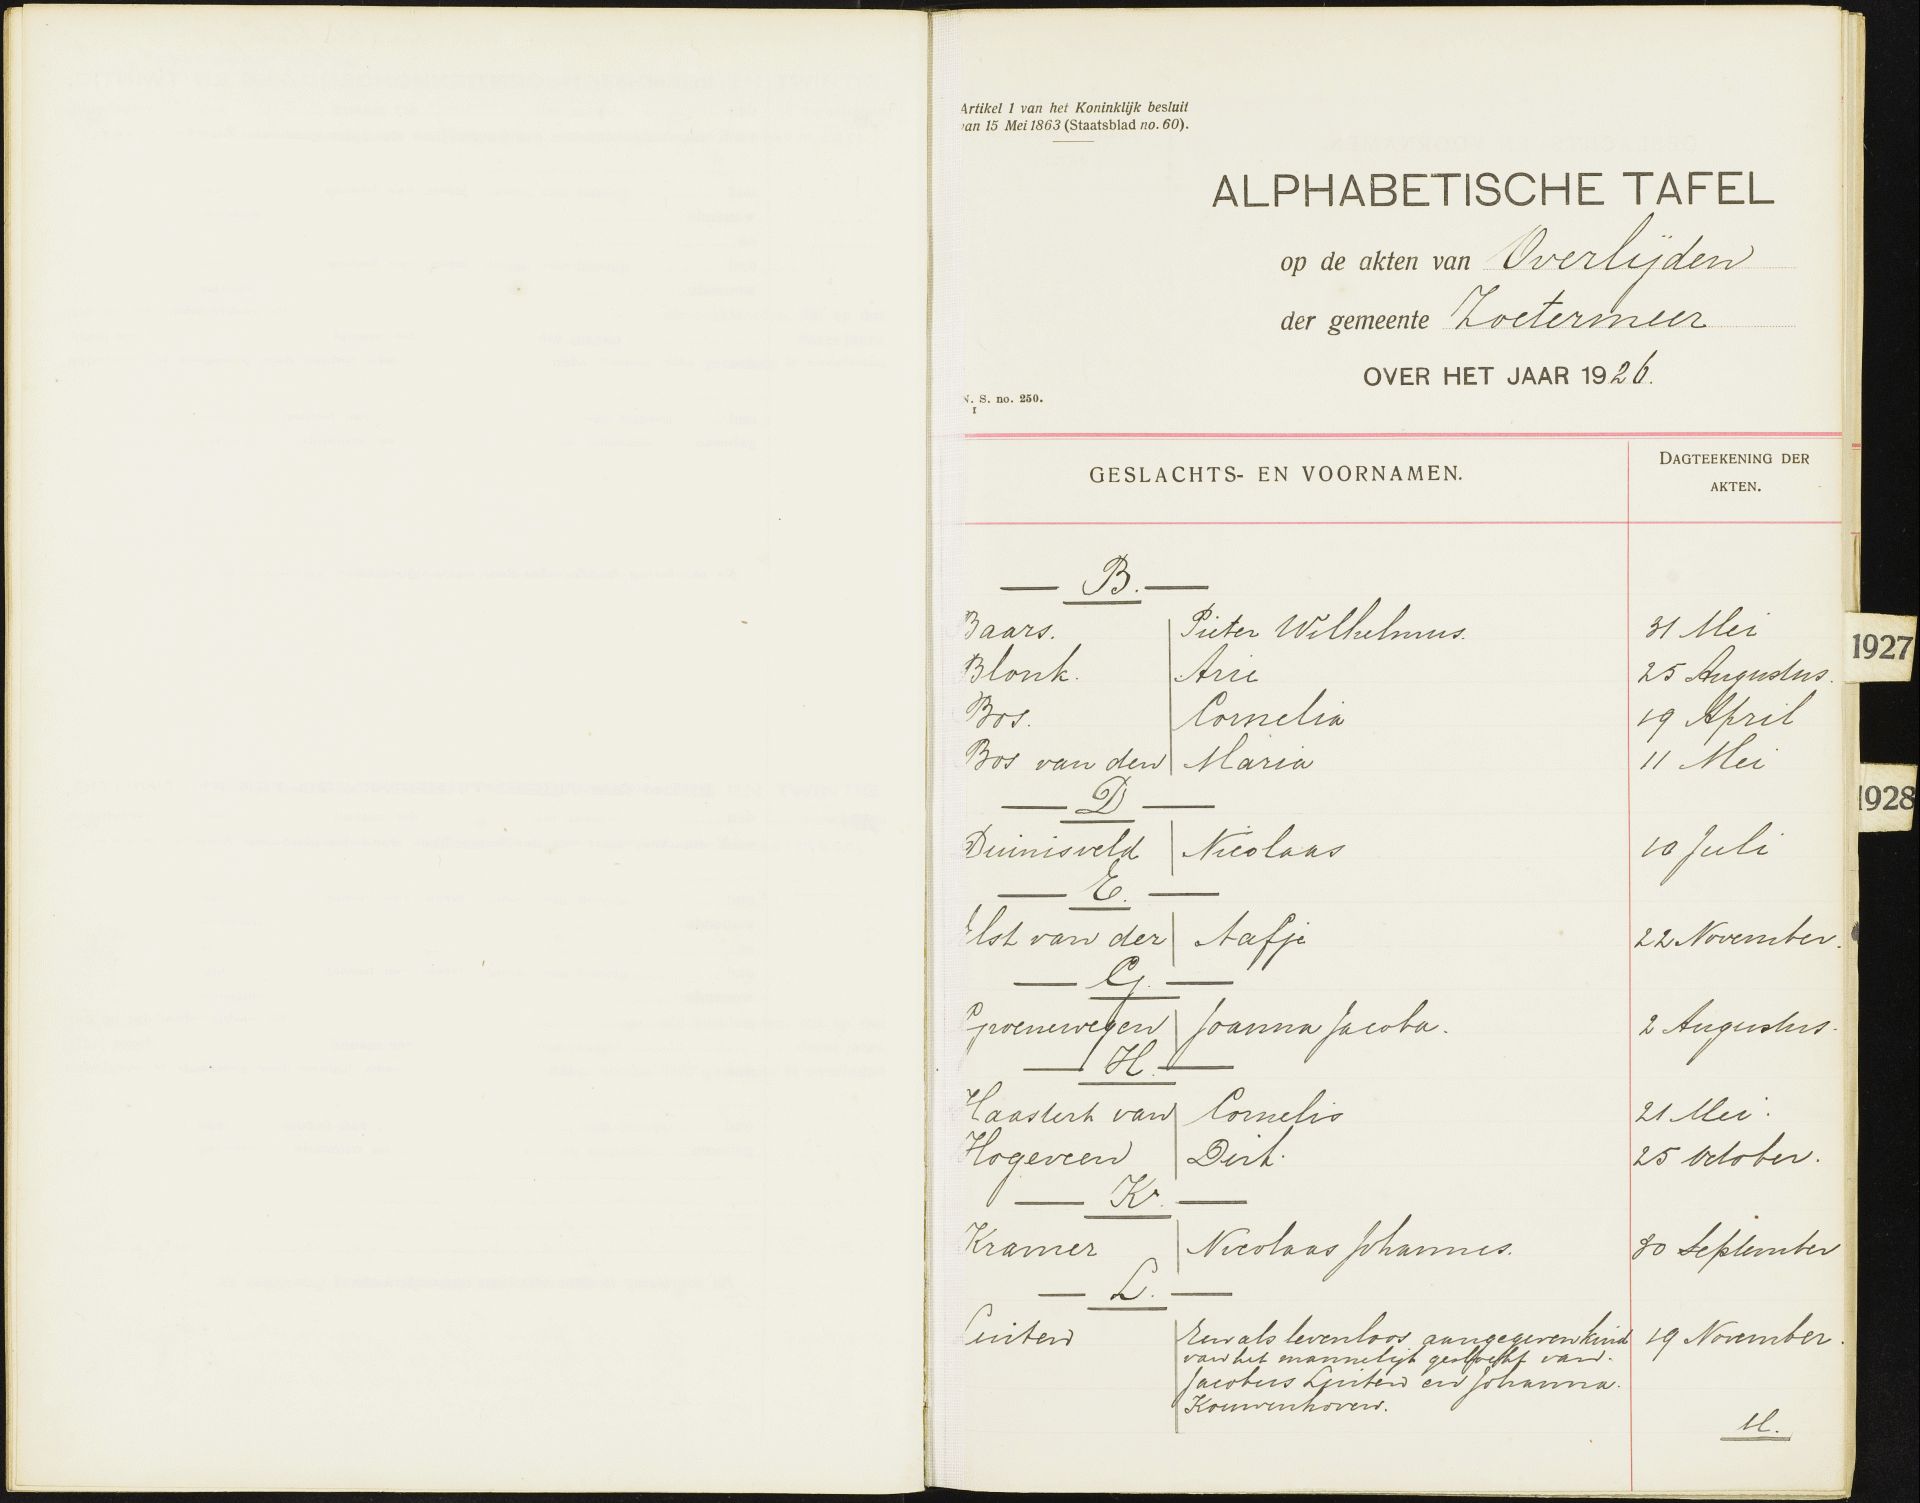 Artikel 1 van het Koninklijk besluit
van 15 Mei 1863 (Staatsblad no. 60).
ALPHABETISCHE TAFEL
op de akten van Overlijden
der gemeente Zoetermeer
OVER HET JAAR 1926.
N. S. no. 250.
I
GESLACHTS- EN VOORNAMEN.
DAGTEEKENING DER
AKTEN.
— B. —
Baars. Pieter Wilhelmus. 31 Mei
Blonk. Arie 25 Augustus.
Bos. Cornelia 19 April
Bos van den Maria 11 Mei
— D —
Duinisveld Nicolaas 10 Juli
— E. —
Elst van der Aafje 22 November.
— G. —
Groenewegen Joanna Jacoba. 2 Augustus.
— H. —
Haastert van Cornelis 21 Mei.
Hogeveen Dirk. 25 October.
— K. —
Kramer Nicolaas Johannes. 30 September
— L. —
Luiten Een als levenloos aangegeven kind 19 November.
van het mannelijk geslacht van
Jacobus Luiten en Johanna
Kouwenhoven.
M.
1927
1928